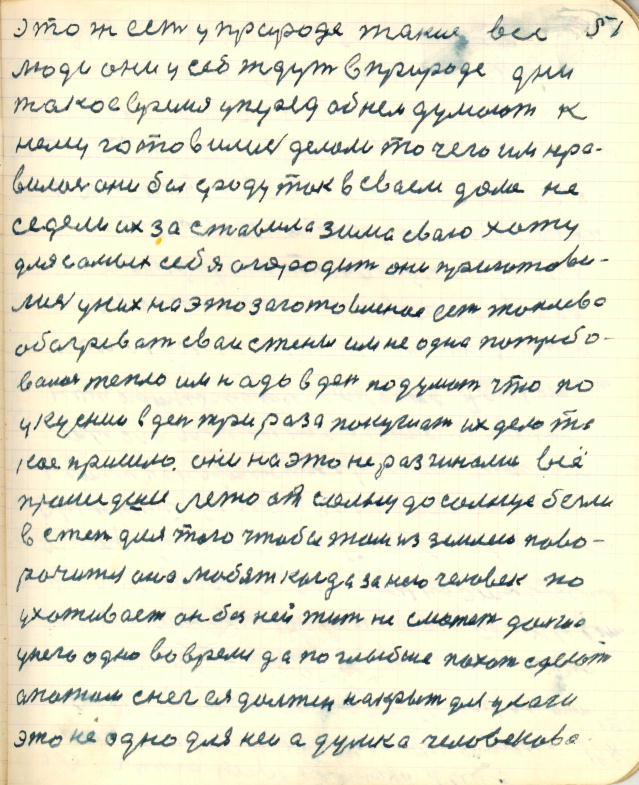 это ж ест у природе такие все 51
люди они у себ ждут в природе дни
такое время уперед об нем думают к
нему готовилися делали то чего им нра-
вилося они бы сроду так в сваем доме не
седели их заставила зима сваю хату
для самых себя огародит они приготови-
лися у них на это заготовленае ест топлево
обагреват сваи стены им не одна потребо-
валося тепло им надо в ден подумат что по
укуснии в ден три раза покушат их дело та
кое пришло. они на это не разчинали все
прошедшие лето от солнца до солнце были
в степ для того чтобы там из землею пово-
рочится она любят когда за нею человек по
ухаживает он без ней жит не сможет долго
у него одно во время да поглыбше пахат сделат
а потом снег ея должен накрыт для улаги
это не одно для неи а думка человекова